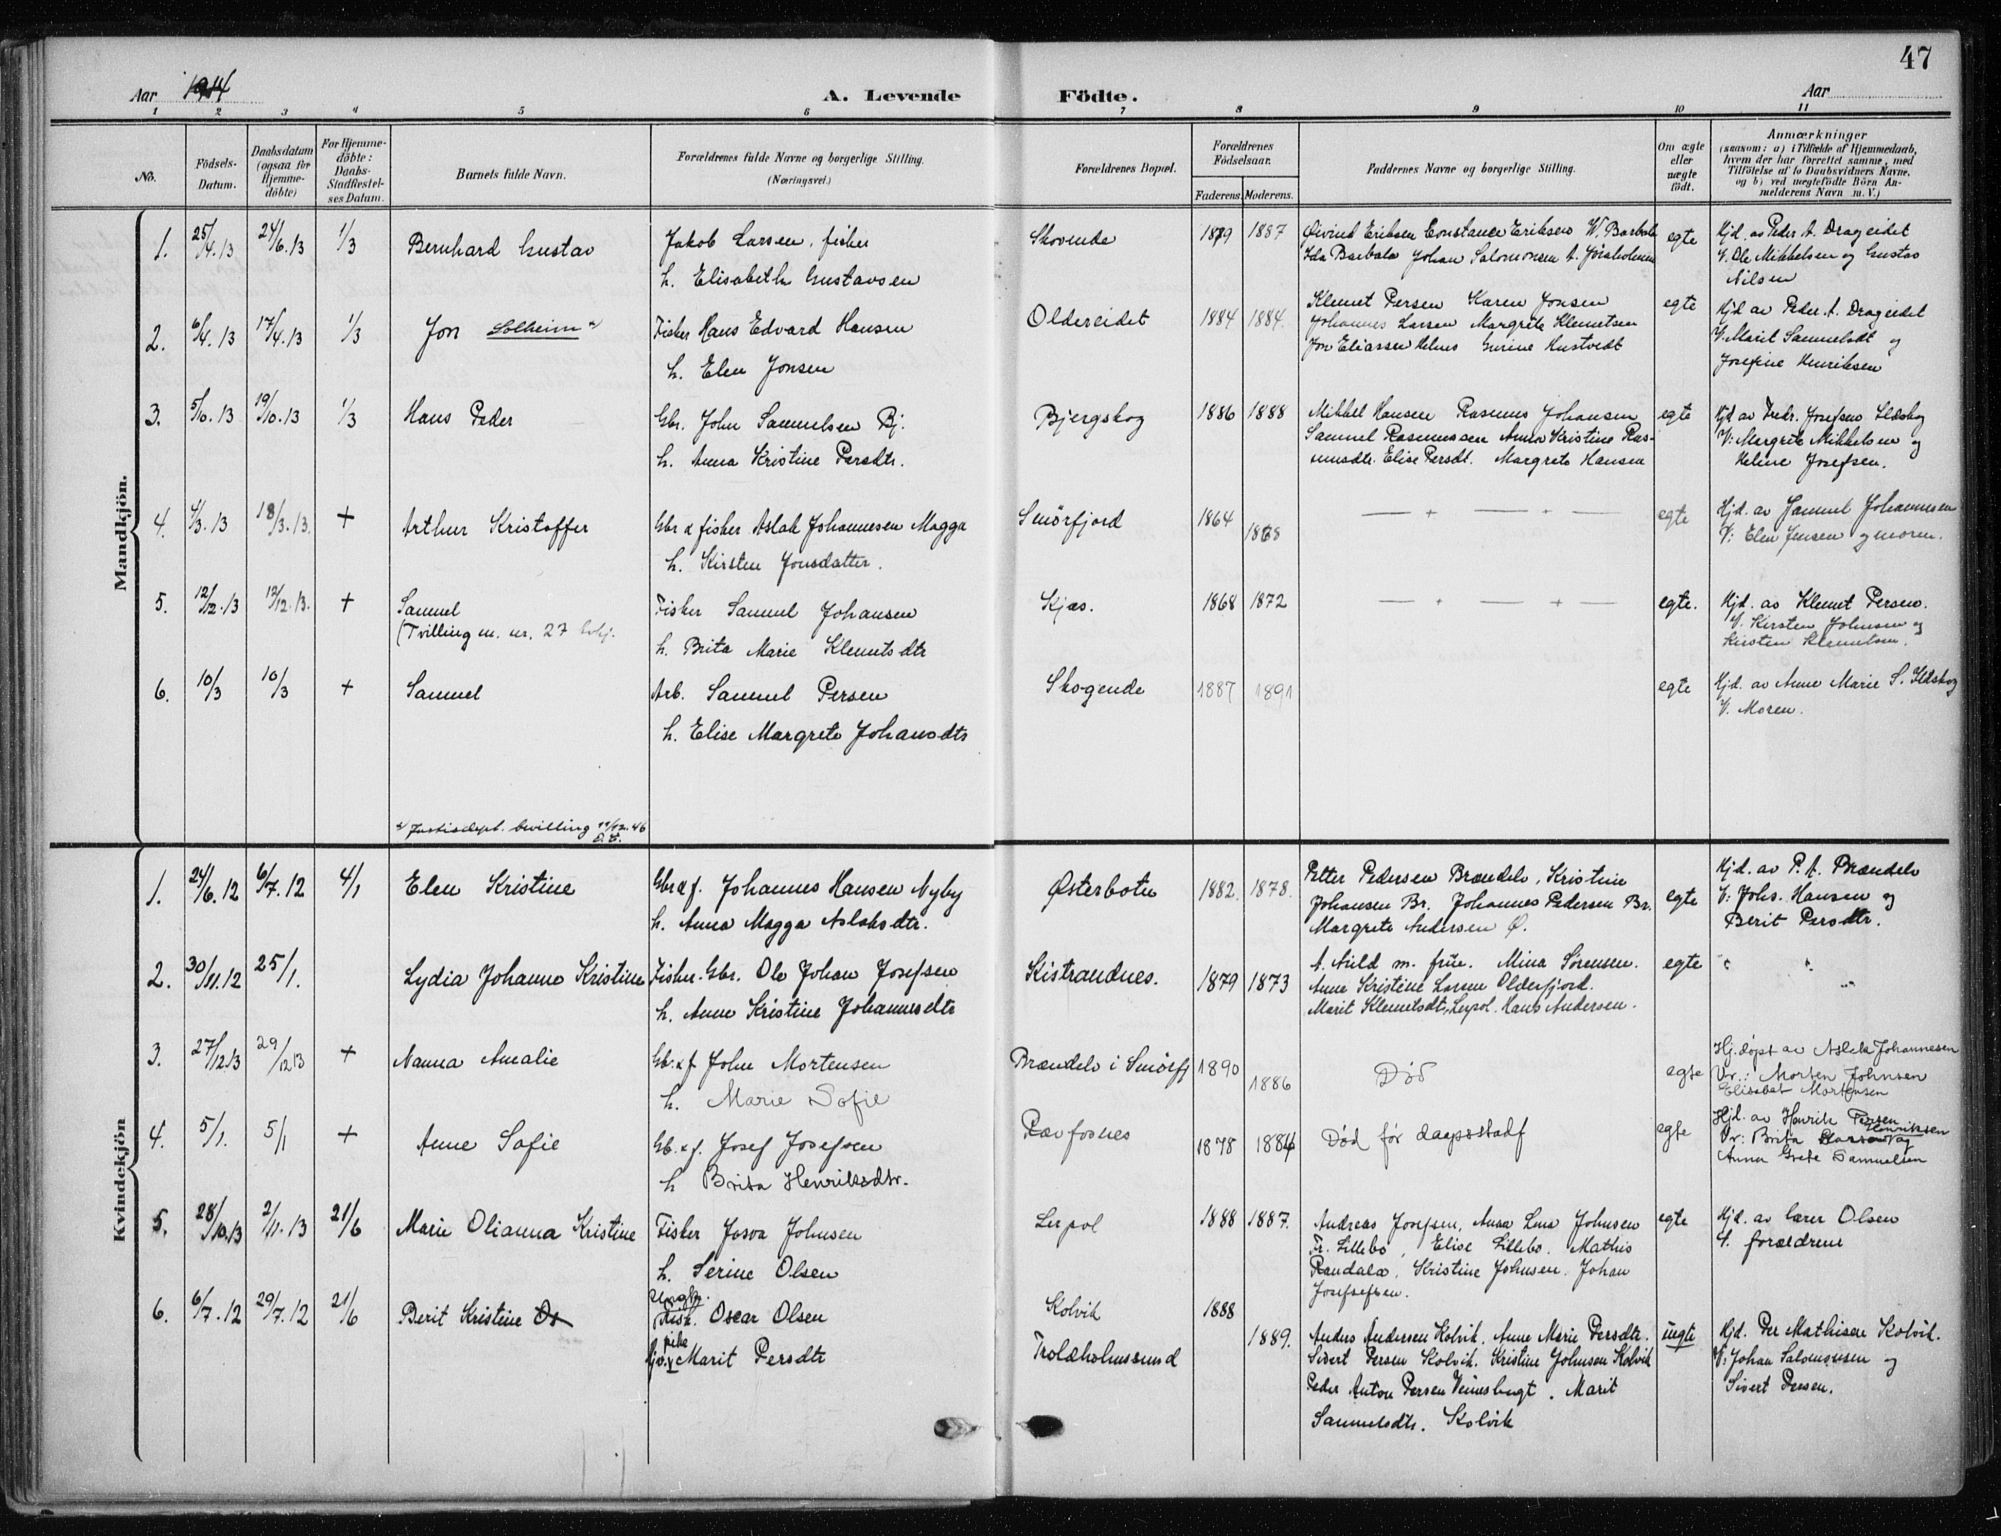 47
Aar 1914 A. Levende Födte. Aar
1 2 3 4 5 6 7 8 9 10 11
No. Födsels-Datum. Daabsdatum (ogsaa for Hjemme-döbte) For Hjemme-döbte: Daabs-Stadfæstel-ses Datum. Barnets fulde Navn. Forældrenes fulde Navne og borgerlige Stilling. (Næringsvei.) Forældrenes Bopæl. Forældrenes Födselsaar. Faderens. Moderens. Faddernes Navne og borgerlige Stilling. Om ægte eller uægte födt. Anmærkninger (saasom: a) i Tilfælde af Hjemmedaab, hvem der har forrettet samme, med Tilföielse af to Daabsvidners Navne, og b) ved uegtefödte Börn An-melderens Navn m. V.)
Mandkjön.
1. 25/4.13 24/6.13 1/3 Bernhard Gustav Jakob Larsen, fisher Skovende 1879 1887 Øivind Eriksen Constance Eriksen W. Barbala egte Hjd. av Peder A. Drageidet
h. Elisabeth Gustavsen Ida Barbala Johan Salomonsen V. Ole Mikkelsen og Gustav
Nilsen
2. 6/4.13 17/4.13 1/3 Jon Solheim Fisker Hans Edvard Hansen Oldereidet 1884 1884. Klemet Persen Karen Jonsen egte Hjd av Peder A. Drageidet
h. Elen Jonsen Johannes Larsen Margrete Klemetsen V. Marit Samuelsdt og
Jon Eliassen Josefine Henriksen
3. 5/10.13 19/10.13 1/3 Hans Peder Gbr. John Samuelsen Bj. Bjergskog 1886 1888 Mikkel Hansen Rasmus Johansen egte Hjd av Fredr. Josefsen Ildskog
h. Anna Kristine Persdtr. Samuel Rasmussen Anna Kristine Ras- V: Margrete Mikkelsen og
musdtr. Elise Persdt. Margrete Hansen Heline Josefsen.
4. 4/3.13 18/3.13. + Arthur Kristoffer Gbr & fisher Aslak Johannesen Magga Smörfjord 1864 1868 — + — + — egte Hjd. av Samuel Johannesen
h. Kirsten Jonsdatter. V: Elen Jensen og moren.
5. 12/12.13 12/12.13. + Samuel Fisker Samuel Johansen Kjæs. 1868 1872 — + — + — egte. Hjd. av Klemet Persen.
(Tvilling m. nr. 27 h. Brita Marie Klemetsdtr V. Kirsten Johnsen og
Kirsten Klemetsen.
6. 10/3 10/3 + Samuel Arb. Samuel Persen Skogende 1887 1891 egte Hjd. av Anne Marie S. Ildskog
h. Elise Margrete Johansdtr V. Moren.
Justisdept. bevilling 11/12.46
Kvindekjön
1. 24/6.12 6/7.12 4/1 Elen Kristine Gbr & f. Johannes Hansen Nyby Østerboten 1882. 1878. Petter Pedersen Brændelv, Kristine egte Hjd. av P. A. Brændelv
h. Anna Magga Aslaksdtr. Johansen Br. Johannes Pedersen Br. V: Johs. Hansen og
Margrete Andersen Ø. Berit Persdtr.
2. 30/11.12 25/1. Lydia Johanne Kristine Fisker. Gbr. Ole Johan Josefsen Kistrandnes. 1879 1873 A. Auld m. frue. Mina Sörensen. egte " "
h. Anne Kristine Johannesdtr Anne Kristine Larsen Olderfjord. "
Marit Klemetsdt, Lerpol. Hans Andersen.
3. 27/12.13 29/12.13 + Nanna Amalie Gb. & f. John Mortensen Brændelv i Smörfj 1890 1886 Död egte Hj.döpt av Aslak Johannesen
h. Marie Sofie Vr.: Morten Johnsen
Elisabet Mortensen
4. 5/1. 5/1 + Anne Sofie Gb. & f. Josef Josefsen Rævfosnes 1878 1884 Död för daapsstadf egte Hjd. av Henrik Persen
h Brita Henriksdtr. Vr: Brita Henriksen og
Anna Grete Samuelsen
5. 28/10.13 2/11.13 21/6 Marie Olianna Kristine Fisker Josva Johnsen Lerpol 1888 1887. Andreas Josefsen, Anna Lena Johnsen egte Hjd. av lærer Olsen
h. Serine Olsen Fr. Lillebo, Elise Lillebo. Mathis V. forældrene
Randala, Kristine Johnsen. Johan
Josefsefsen.
6. 6/7.12 29/7.12 21/6 Berit Kristine Os Ungk. Fisk. Oscar Olsen Kolvik 1888
pike Marit Persdtr Troldholmssund 1889. Anders Andersen Kolvik. Anne Marie Persdtr. uegte Hjd. Per Mathisen Kolvik.
Sivert Persen Kolvik. Kristine Johnsen Kolvik V: Johan Salomonsen og
Peder Anton Persen Veinesbugt. Marit Sivert Persen.
Samuelsdtr. Kolvik